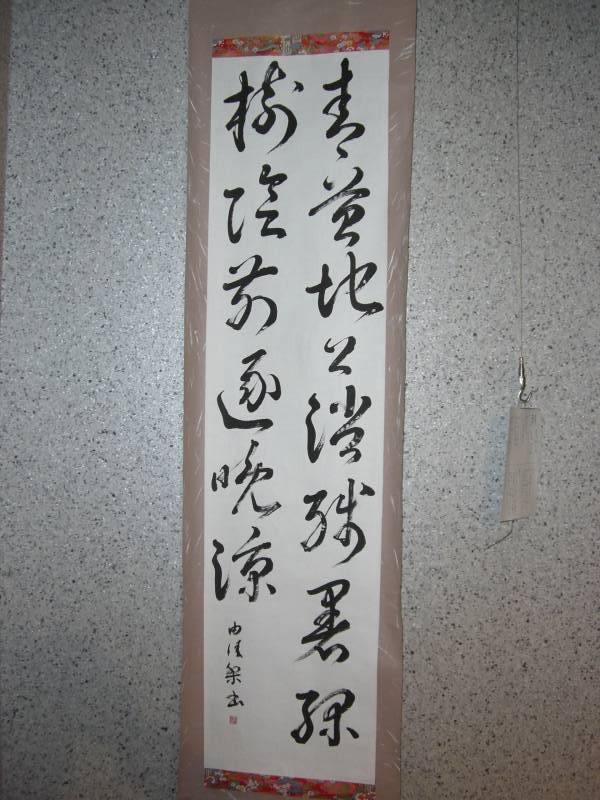 青苔地上消残暑緑
樹陰前逐晩涼
由佳書